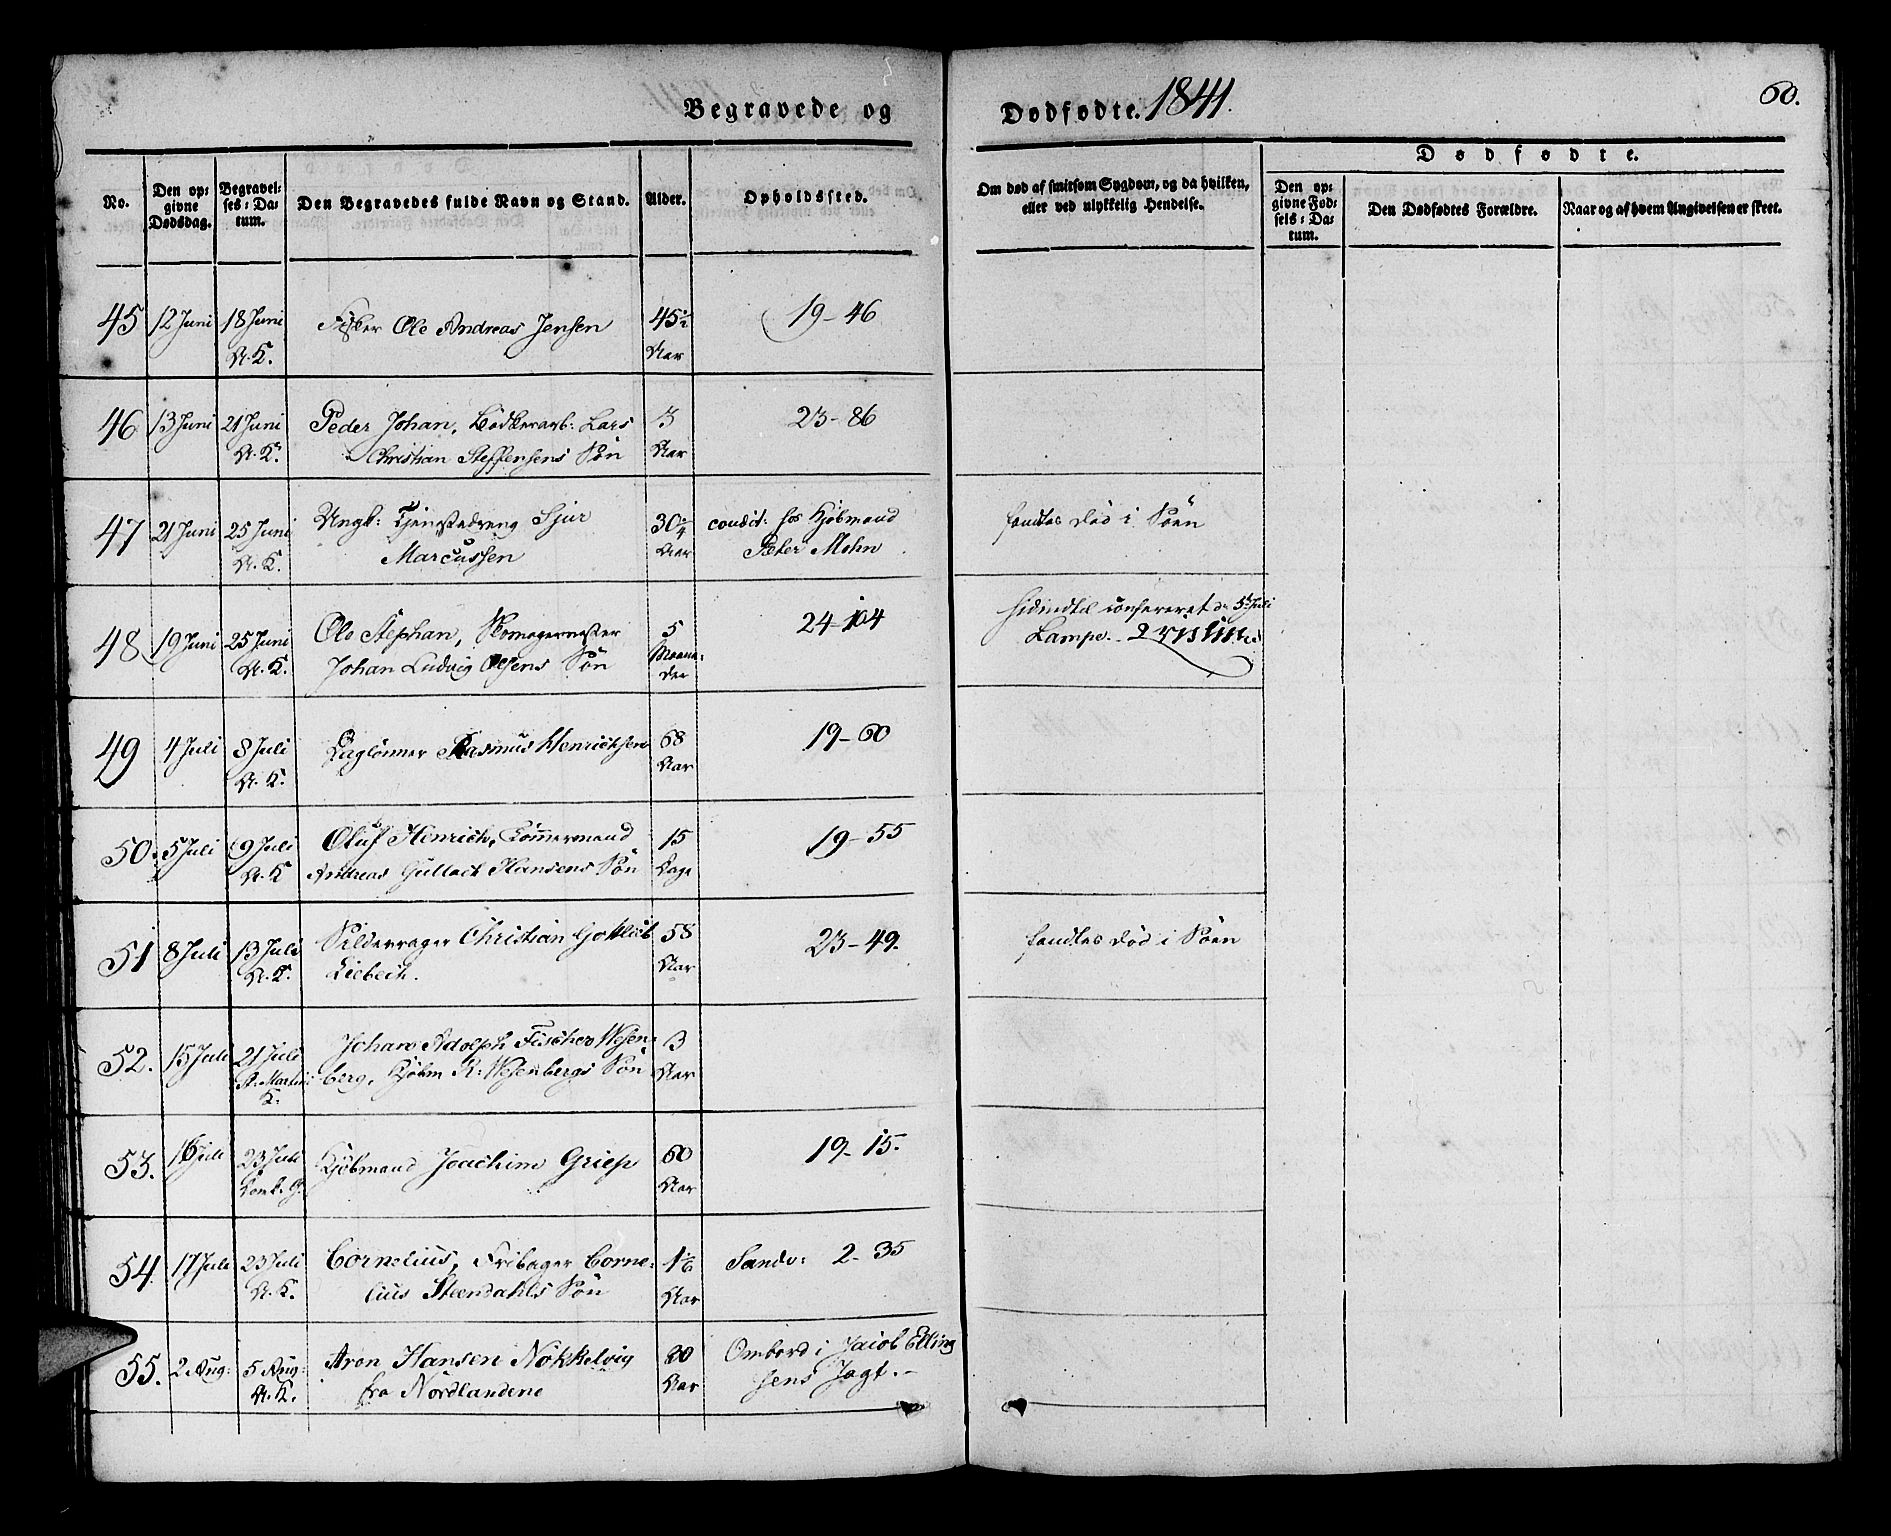 Begravede og Dødfødte. 1841. 60.
No. | Den opgivne Dødsdag. | Begravelses-Datum. | Den Begravedes fulde Navn og Stand. | Alder. | Opholdssted. | Om død af smitsom Sygdom, og da hvilken, eller ved ulykkelig Hendelse.
Dødfødte.
Den opgivne Fødsels-Datum. | Den Dødfødtes Forældre. | Naar og af hvem Angivelsen er skeet.
45 12 Juni 18 Juni Fisker Ole Andreas Jensen 45½ 19-46
N.K. Aar
46 13 Juni 21 Juni Peder Johan, Bødkerarb: Lars 3 23-86
N.K. Christian Steffensens Søn Aar
47 21 Juni 25 Juni Ungk: Tjenstedreng Sjur 30¼ condit: hos Kjøbmand fandtes død i Søen
N.K. Marcussen Aar Peter Mohn
48 19 Juni 25 Juni Ole Stephan, Skomagermester 5 24-104 d. 5 Juli
N.K. Johan Ludvig Olsens Søn Maane: Lampe.
der
49 4 Juli 8 Juli Daglønner Rasmus Henrichsen 68 19-60
N.K. Aar
50. 5 Juli 9 Juli Oluf Henrich, Tømmermand 15 19-55
N.K. Andreas Gullack Hansens Søn Dage
51 8 Juli 13 Juli Sildevrager Christian Gottlob 58 23-49. fandtes død i Søen
N.K. Liebech. Aar
52. 15 Juli 21 Juli Johan Adolph Fischer Wesen- 3
St. Martini berg, Kjøbm R: Wesenbergs Søn Aar
K.
53. 16 Juli 23 Juli Kjøbmand Joachim Griep 60 19-15.
Domk. G. Aar
54. 17 Juli 23 Juli Cornelius, Fribager Corne- 1⅙ Sandv: 2-35
N.K. lius Steendahls Søn Aar
55. 2 Aug: 5 Aug: Aron Hansen Nøkkelvig 20 Ombord i Jacob Elling
N.K. fra Nordlandene Aar sens Jagt.